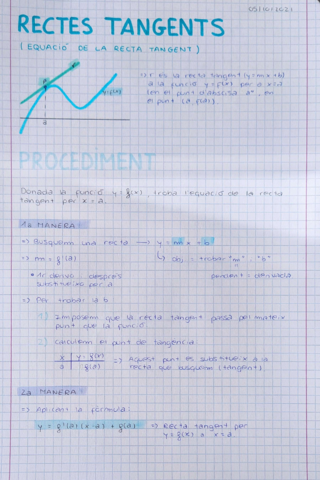 05/10/2021
RECTES TANGENTS
(EQUACIÓ DE LA RECTA TANGENT)
=> r és la recta tangent (y=mx+b)
a la funció y=f(x) per a x=a
(en el punt d'abscisa "a", en
el punt (a, f(a)).
y=f(x)
PROCEDIMENT
Donada la funció y=f(x), troba l'equació de la recta
tangent per x=a.
1a MANERA:
=> Busquem una recta → y = mx + b
↳ obj.: trobar "m", "b"
=> m = f'(a)
pendent = derivada
• 1r derivo, després
substitueixo per a
=> Per trobar la b
1) Imposem que la recta tangent passa pel mateix
punt que la funció
2) Calculem el punt de tangència
x | y=f(x)
a | f(a)
=> Aquest punt es substitueix a la
recta que busquem (tangent)
2a MANERA:
=> Aplicant la fórmula:
y = f'(a)(x-a) + f(a) => Recta tangent per
y=f(x) a x=a.